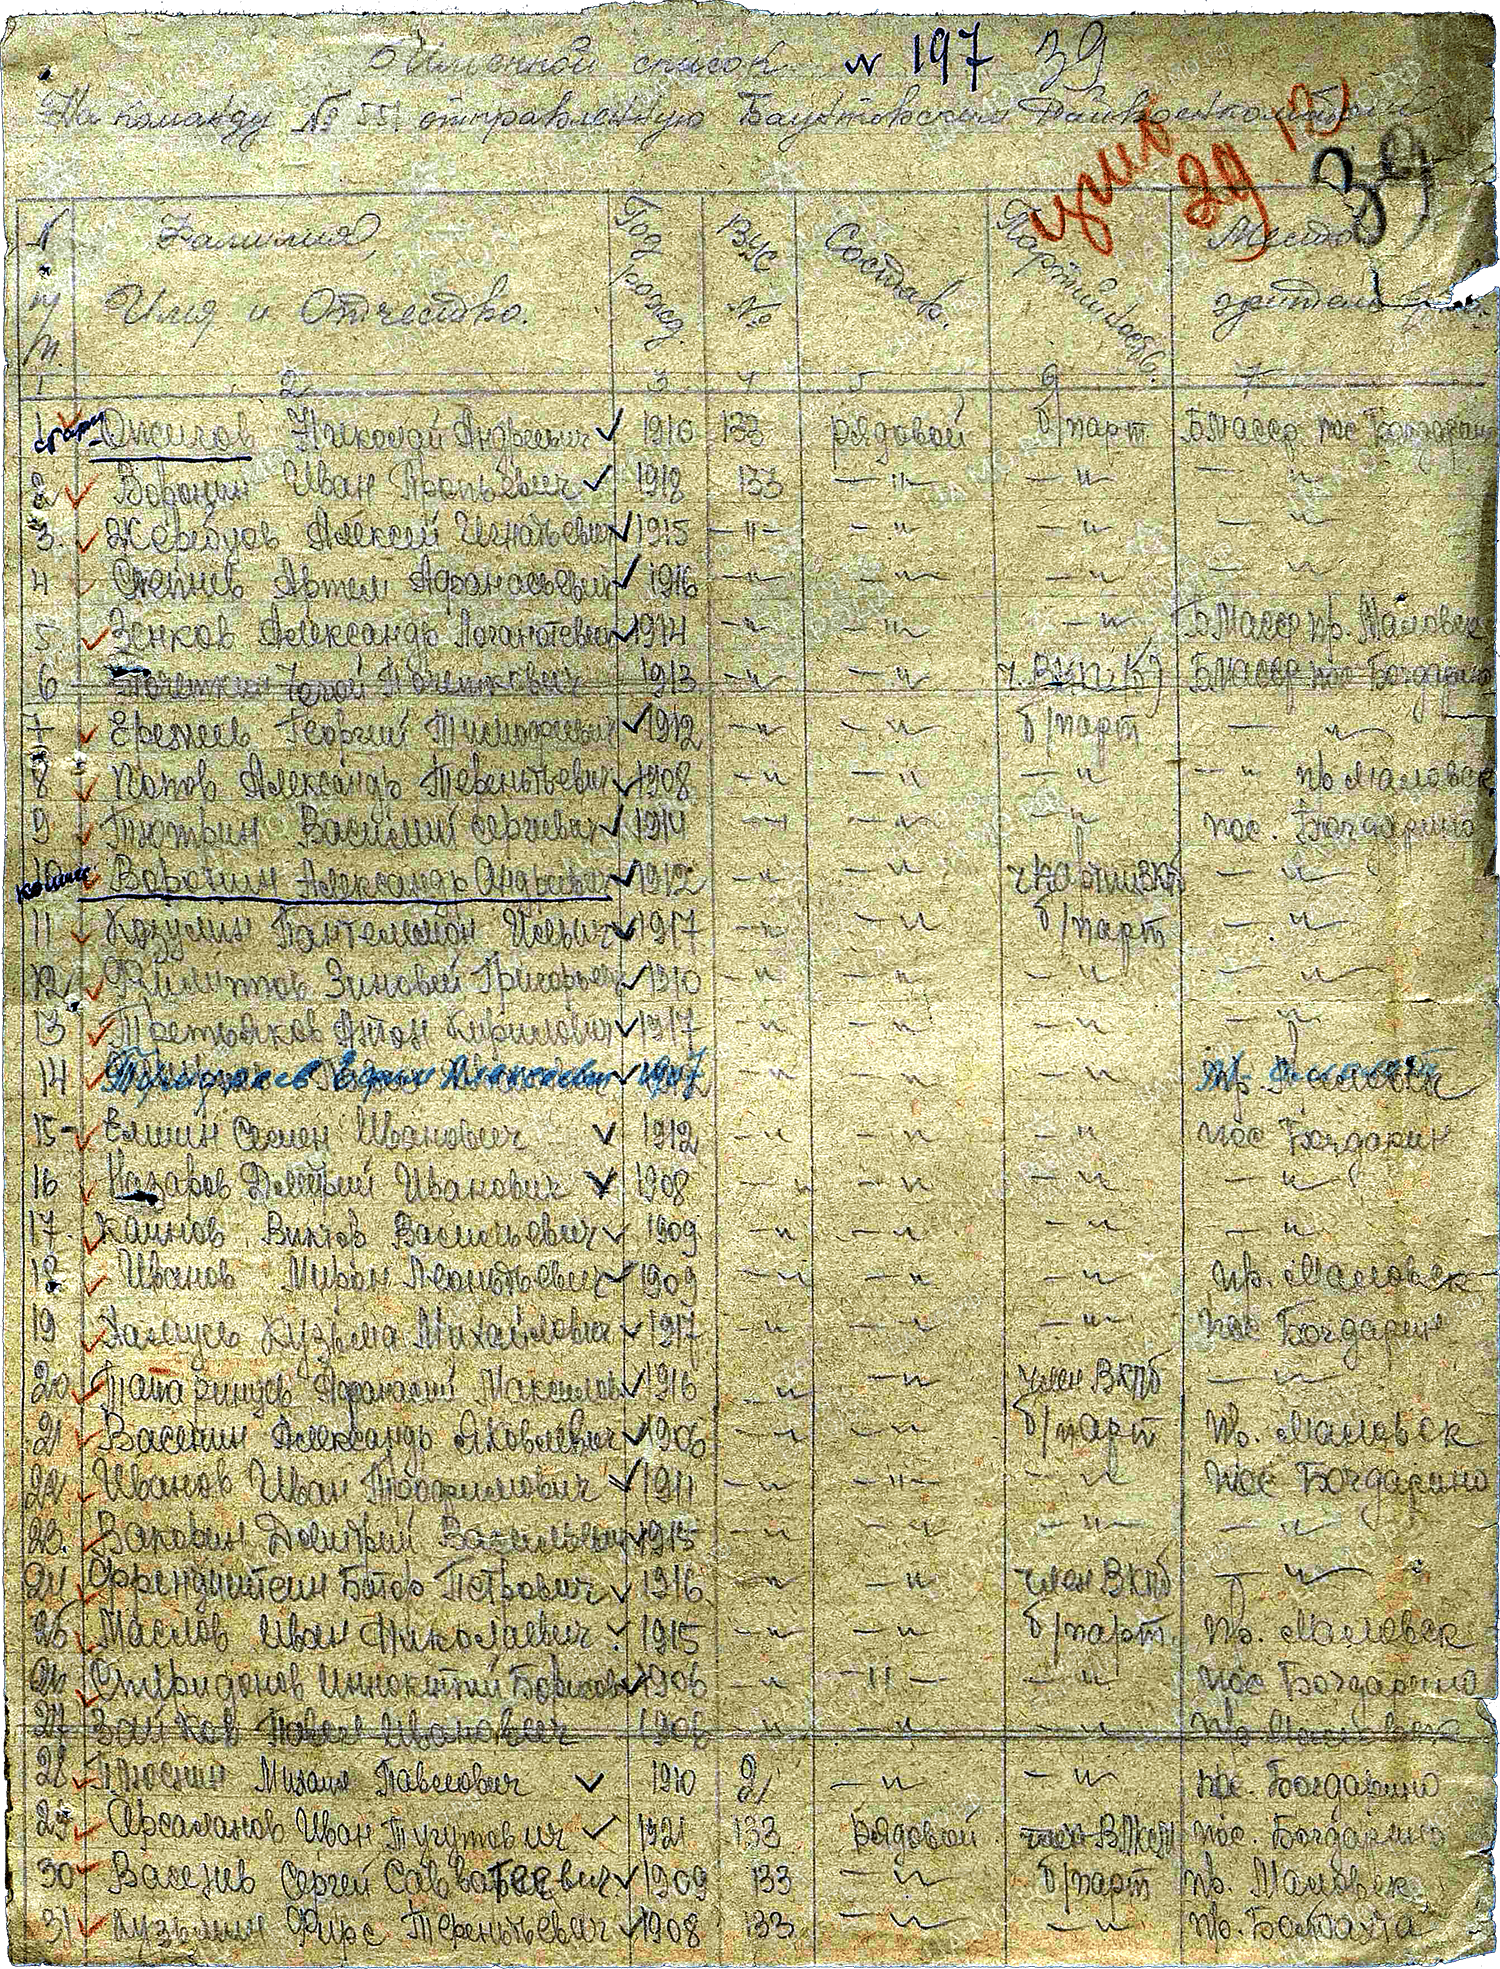 Именной список № 197 39
На команду № отправленную Баунтовским Райвоенкоматом
39
29
№ Фамилия, Год ВУС Состав. Партийность. Место
п/п. Имя и Отчество. рожд. № жительства.
1 2 3 4 5 6 7
1 Николай Андреевич ✓ 1910 133 рядовой б/парт. БМАССР пос Богдарин
2 ✓ Воронин Иван ✓ 1918 133 —"— —"— —"—
3. ✓ Жеребцов Алексей Игнатьевич ✓ 1915 —"— —"— —"— —"—
4 Артем Афанасьевич ✓ 1916 —"— —"— —"— —"—
5 ✓ Зенков Александр ✓ 1914 —"— —"— —"— БМАССР пр. Маловск
6 1913 —"— —"— ч. ВКП(б) БМАССР пос Богдарино
7 ✓ Еремеев Георгий Тимофеевич ✓ 1912 —"— —"— б/парт —"—
8 ✓ Попов Александр Терентьевич ✓ 1908 —"— —"— —"— —"— пр Маловск
9 ✓ Тютрин Василий Сергеевич ✓ 1914 —"— —"— —"— пос. Богдарино
10 ✓ Воронин Александр Андреевич ✓ 1912 —"— —"— ВКПб —"—
11 ✓ Козулин Пантелемон Ильич ✓ 1917 —"— —"— б/парт —"—
12 ✓ Филиппов Зиновей Григорьев ✓ 1910 —"— —"— —"— —"—
13 ✓ Третьяков Антон Кирилович ✓ 1917 —"— —"— —"— —"—
14 ✓ Ефим Алексеевич ✓ 1907 —"— —"— —"— пр. Маловск
15 ✓ Елшин Семен Иванович ✓ 1912 —"— —"— —"— пос Богдарин
16 Назаров Дмитрий Иванович ✓ 1908 —"— —"— —"— —"—
17. ✓ Каинов Виктор Васильевич ✓ 1909 —"— —"— —"— —"—
18 ✓ Иванов Мирон Леонтьевич ✓ 1909 —"— —"— —"— пр. Маловск
19 ✓ Кузьма Михайлович ✓ 1917 —"— —"— —"— пос Богдарин
20 ✓ Татаринцев Афанасий Максимов ✓ 1916 —"— —"— член ВКПб —"—
21 ✓ Васенин Александр Яковлевич ✓ 1906 —"— —"— б/парт пр. Маловск
22 ✓ Иванов Иван Трофимович ✓ 1911 —"— —"— —"— пос Богдарино
23. ✓ Дмитрий Васильевич ✓ 1915 —"— —"— —"— —"—
24 Петрович ✓ 1916 —"— —"— член ВКПб —"—
25 ✓ Маслов Иван Николаевич ✓ 1915 —"— —"— б/парт. пр. Маловск
26 ✓ Спиридонов Иннокетий Борисов ✓ 1906 —"— —"— —"— пос Богдарино
27 Зайков Павел Иванович 1906 —"— —"— —"— пр Маловск
28 ✓ Тюснин Михаил Павлович ✓ 1910 —"— —"— пос. Богдарино
29 ✓ Арсаланов Иван Тугутович ✓ 1921 133 рядовой член ВЛКСМ пос. Богдарино
30 ✓ Васенев Сергей Савватеевич ✓ 1909 133 —"— б/парт пр. Маловск
31 ✓ Кузьмин Фирс Терентьевич ✓ 1908 133 —"— —"— пр.